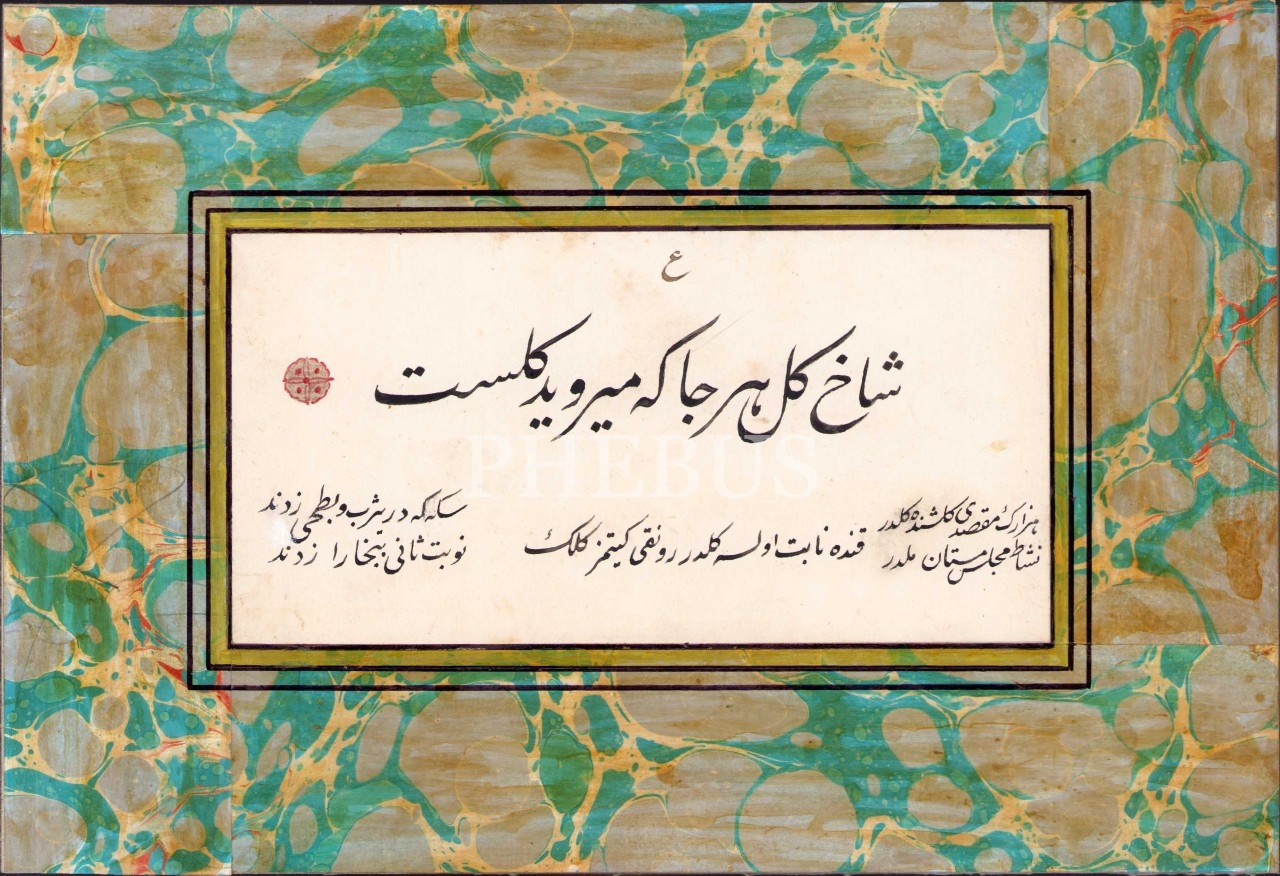 ع
شاخ كل هر جا كه ميرويد كلست
هزارك مقصدى كلشنده كلدر
نشاط مجلس مستان ملدر
قنده نابت اولسه كلدر رونقى كيتمز كلك
سكه كه در يثرب و بطحى زدند
نوبت ثانى ببخارا زدند
PHEBUS